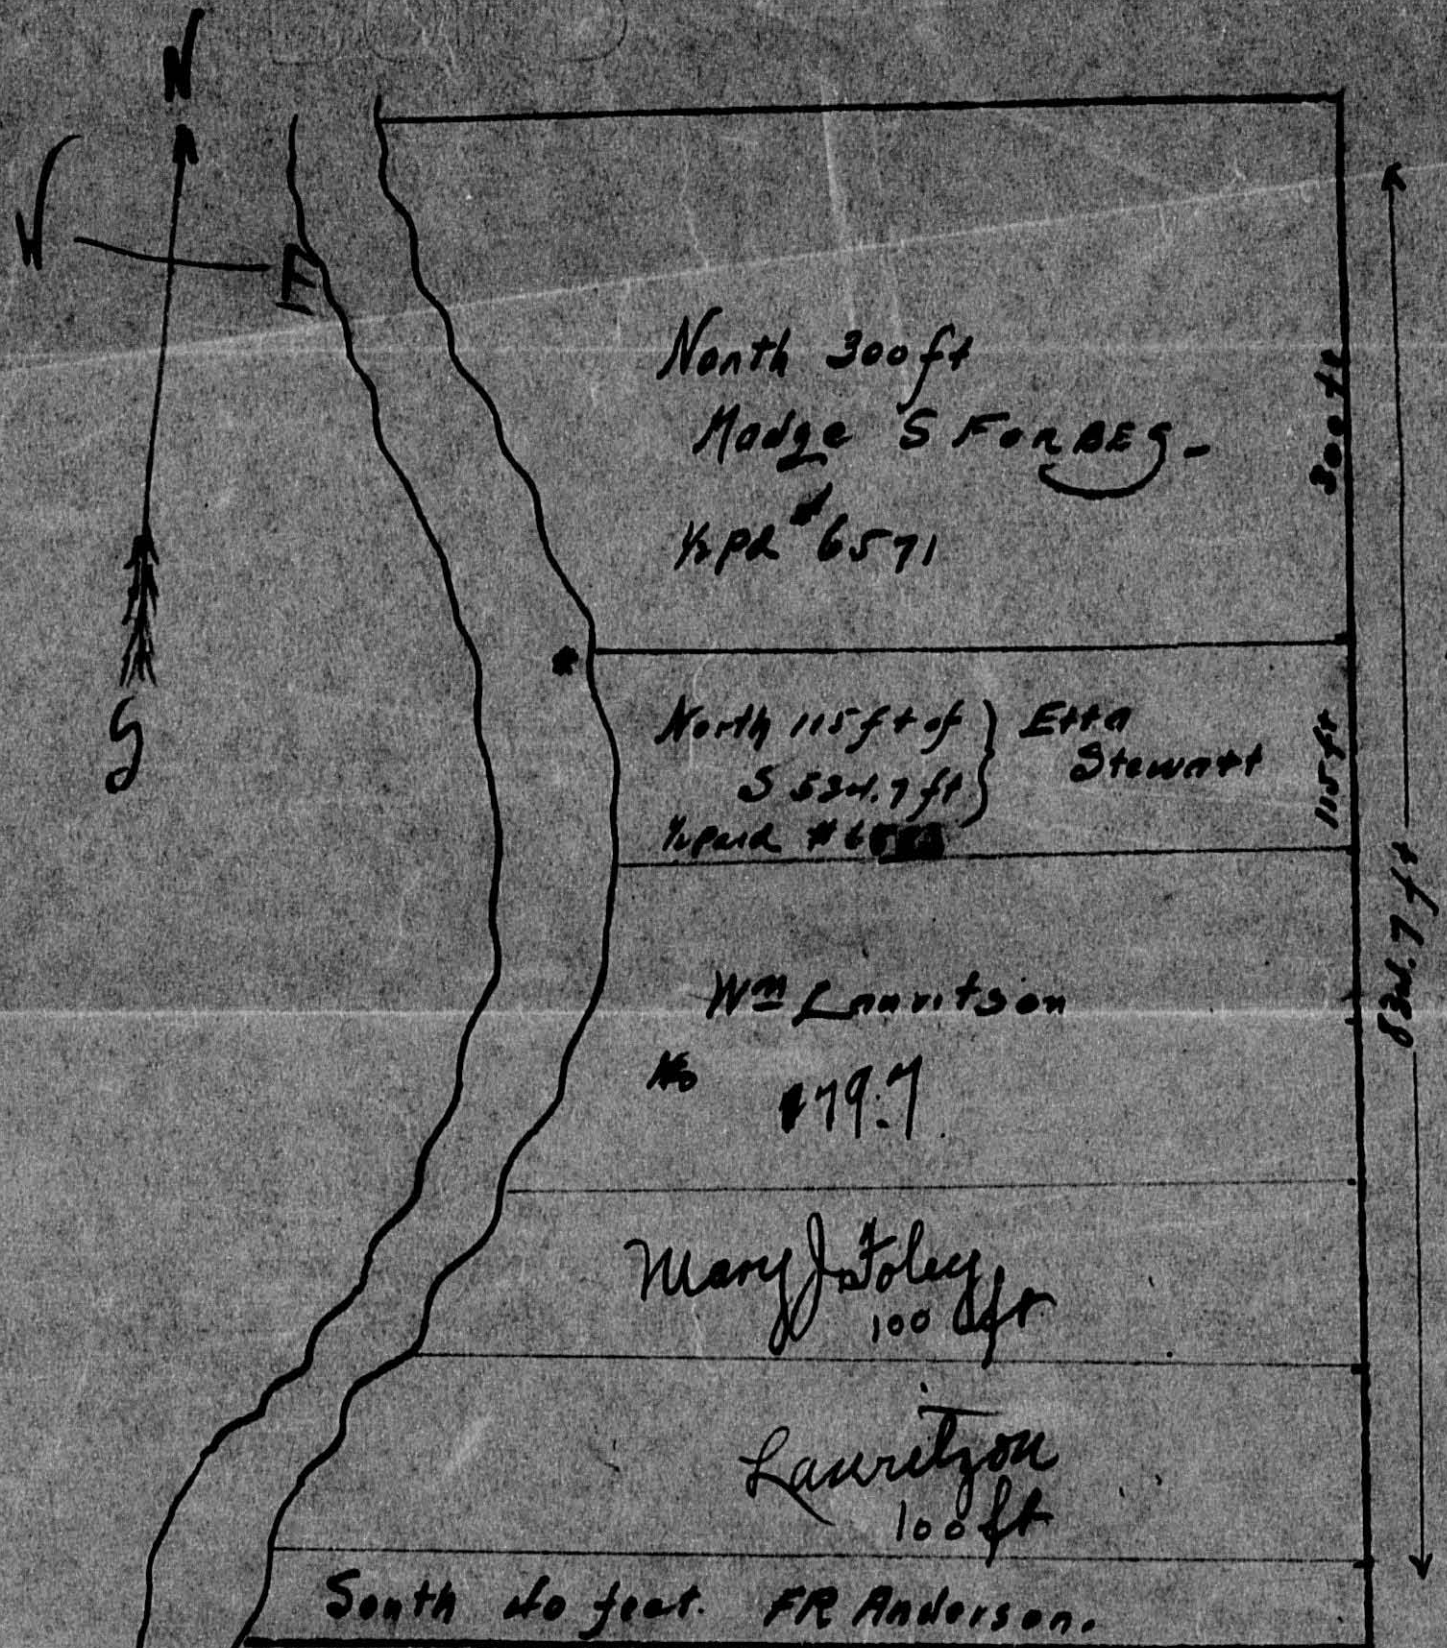 N
W
E
S
North 300 ft
Madge S ForBES -
½ pd #6571
300 ft
North 115 ft of } Etta
S 534.7 ft } Stewart
½ paid #6
115 ft
834.7 ft
Wm Lauritson
179.7
Mary J. Foley
100 ft
Lauritzon
100 ft
South 40 feet. FR Anderson.